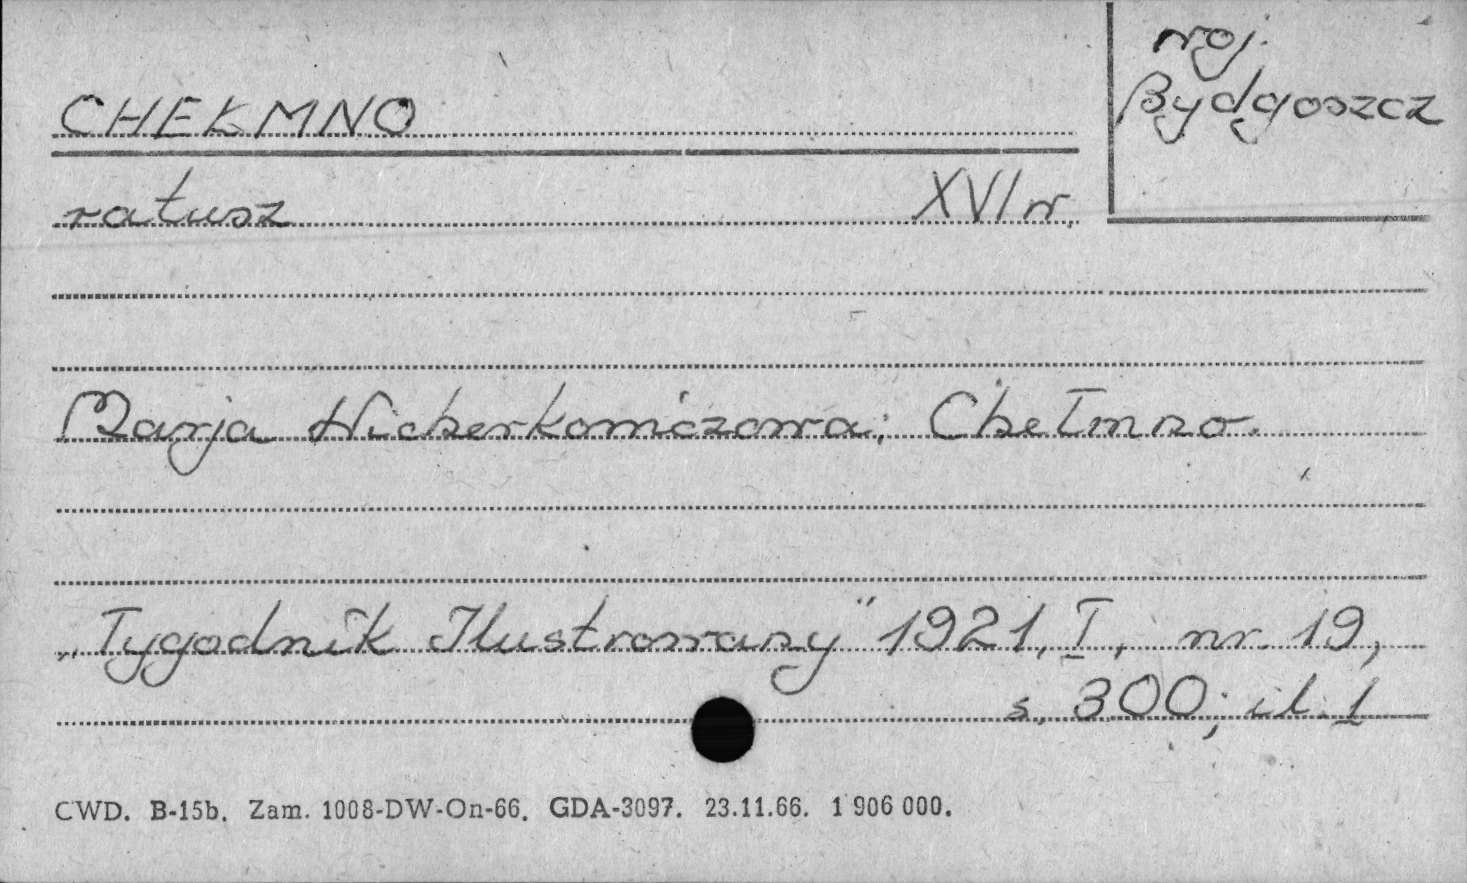 woj.
Bydgoszcz
CHEŁMNO
ratusz XVI w.
Marja Wicherkowiczowa; Chełmno.
„Tygodnik Ilustrowany" 1921, I, nr. 19,
s. 300; il. 1
CWD. B-15b. Zam. 1008-DW-On-66. GDA-3097. 23.11.66. 1 906 000.